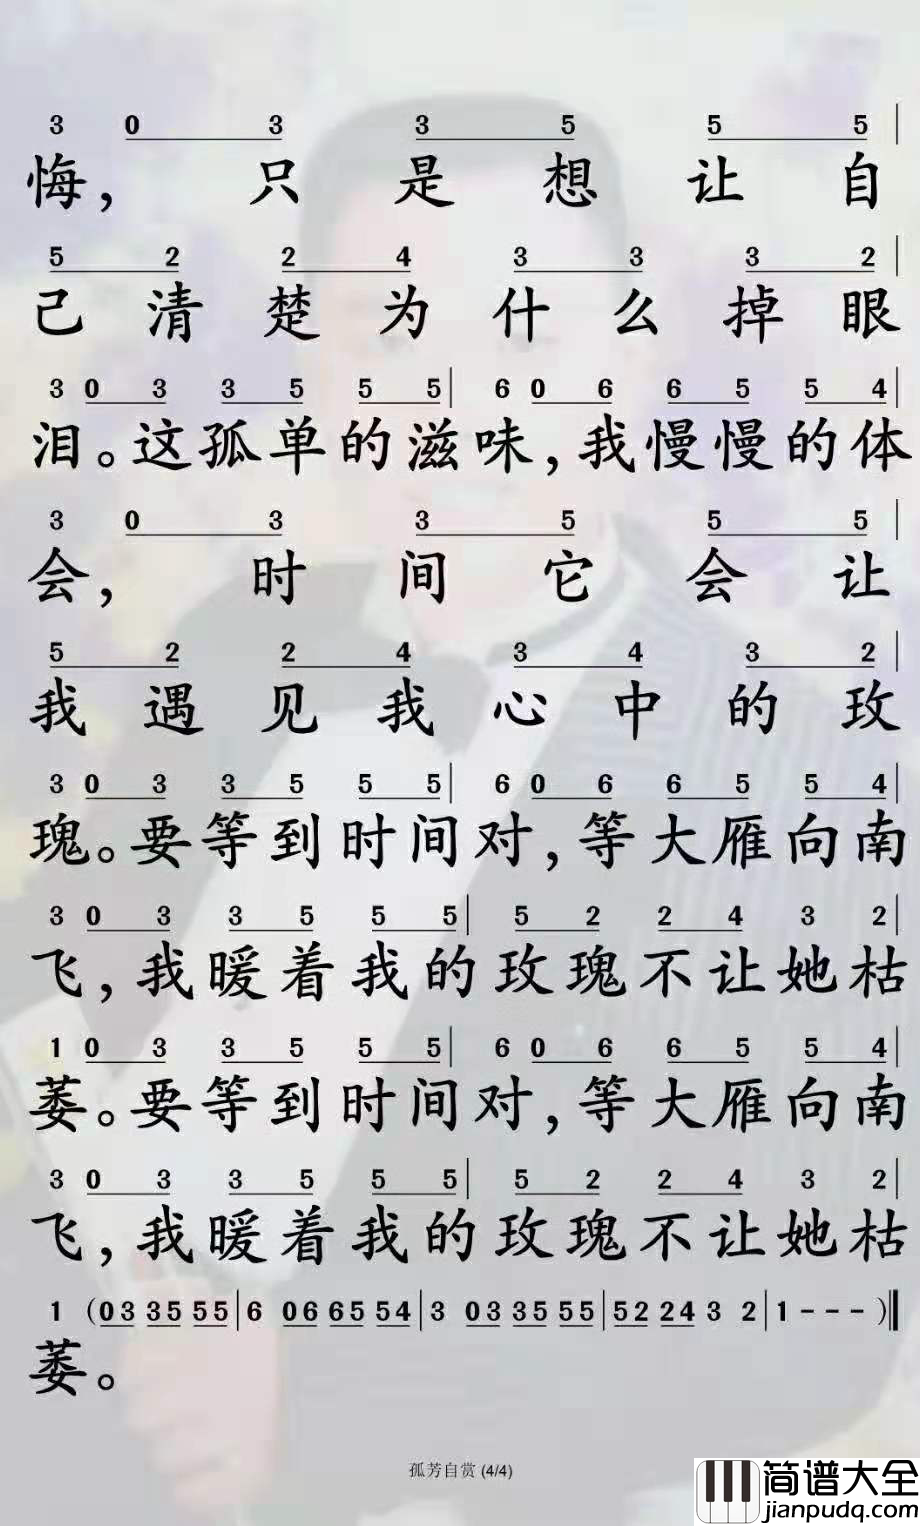 3 0 3 3 5 5 5 |
悔，只是想让自
5 2 2 4 3 3 3 2 |
己清楚为什么掉眼
3 0 3 3 5 5 5 | 6 0 6 6 5 5 4
泪。这孤单的滋味，我慢慢的体
3 0 3 3 5 5 5 |
会，时间它会让
5 2 2 4 3 4 3 2 |
我遇见我心中的玫
3 0 3 3 5 5 5 | 6 0 6 6 5 5 4 |
瑰。要等到时间对，等大雁向南
3 0 3 3 5 5 5 | 5 2 2 4 3 2 |
飞，我暖着我的玫瑰不让她枯
1 0 3 3 5 5 5 | 6 0 6 6 5 5 4 |
萎。要等到时间对，等大雁向南
3 0 3 3 5 5 5 | 5 2 2 4 3 2 |
飞，我暖着我的玫瑰不让她枯
1 (03 35 55 | 6 06 65 54 | 3 03 35 55 | 52 24 3 2 | 1 - - - )‖
萎。
孤芳自赏 (4/4)
简谱大全
jianpudq.com